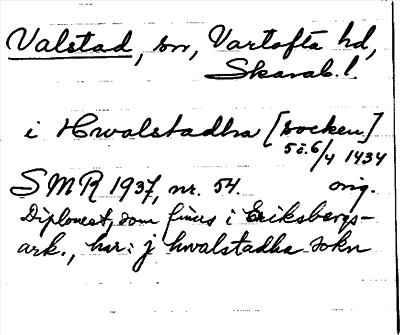 Valstad, sn, Vartofta hd,
Skarab. l.
i Hwalstadha [socken]
5 i. 6/4 1434
SMR 1937, nr. 54. orig.
Diplomet, som finns i Eriksbergs-
ark., har: j hwalstadha sokn